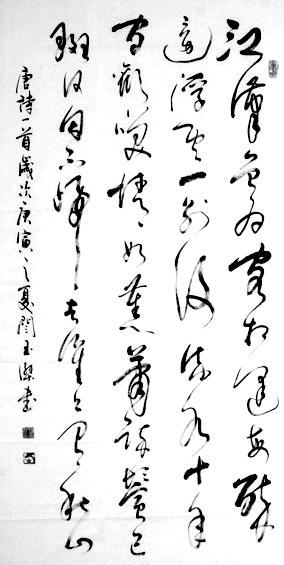 江漢曾為客相逢每醉
還浮雲一別後流水十年
間歡笑情如舊蕭疏鬢已
斑何因不歸去淮上有秋山
唐詩一首歲次庚寅之夏閆玉書